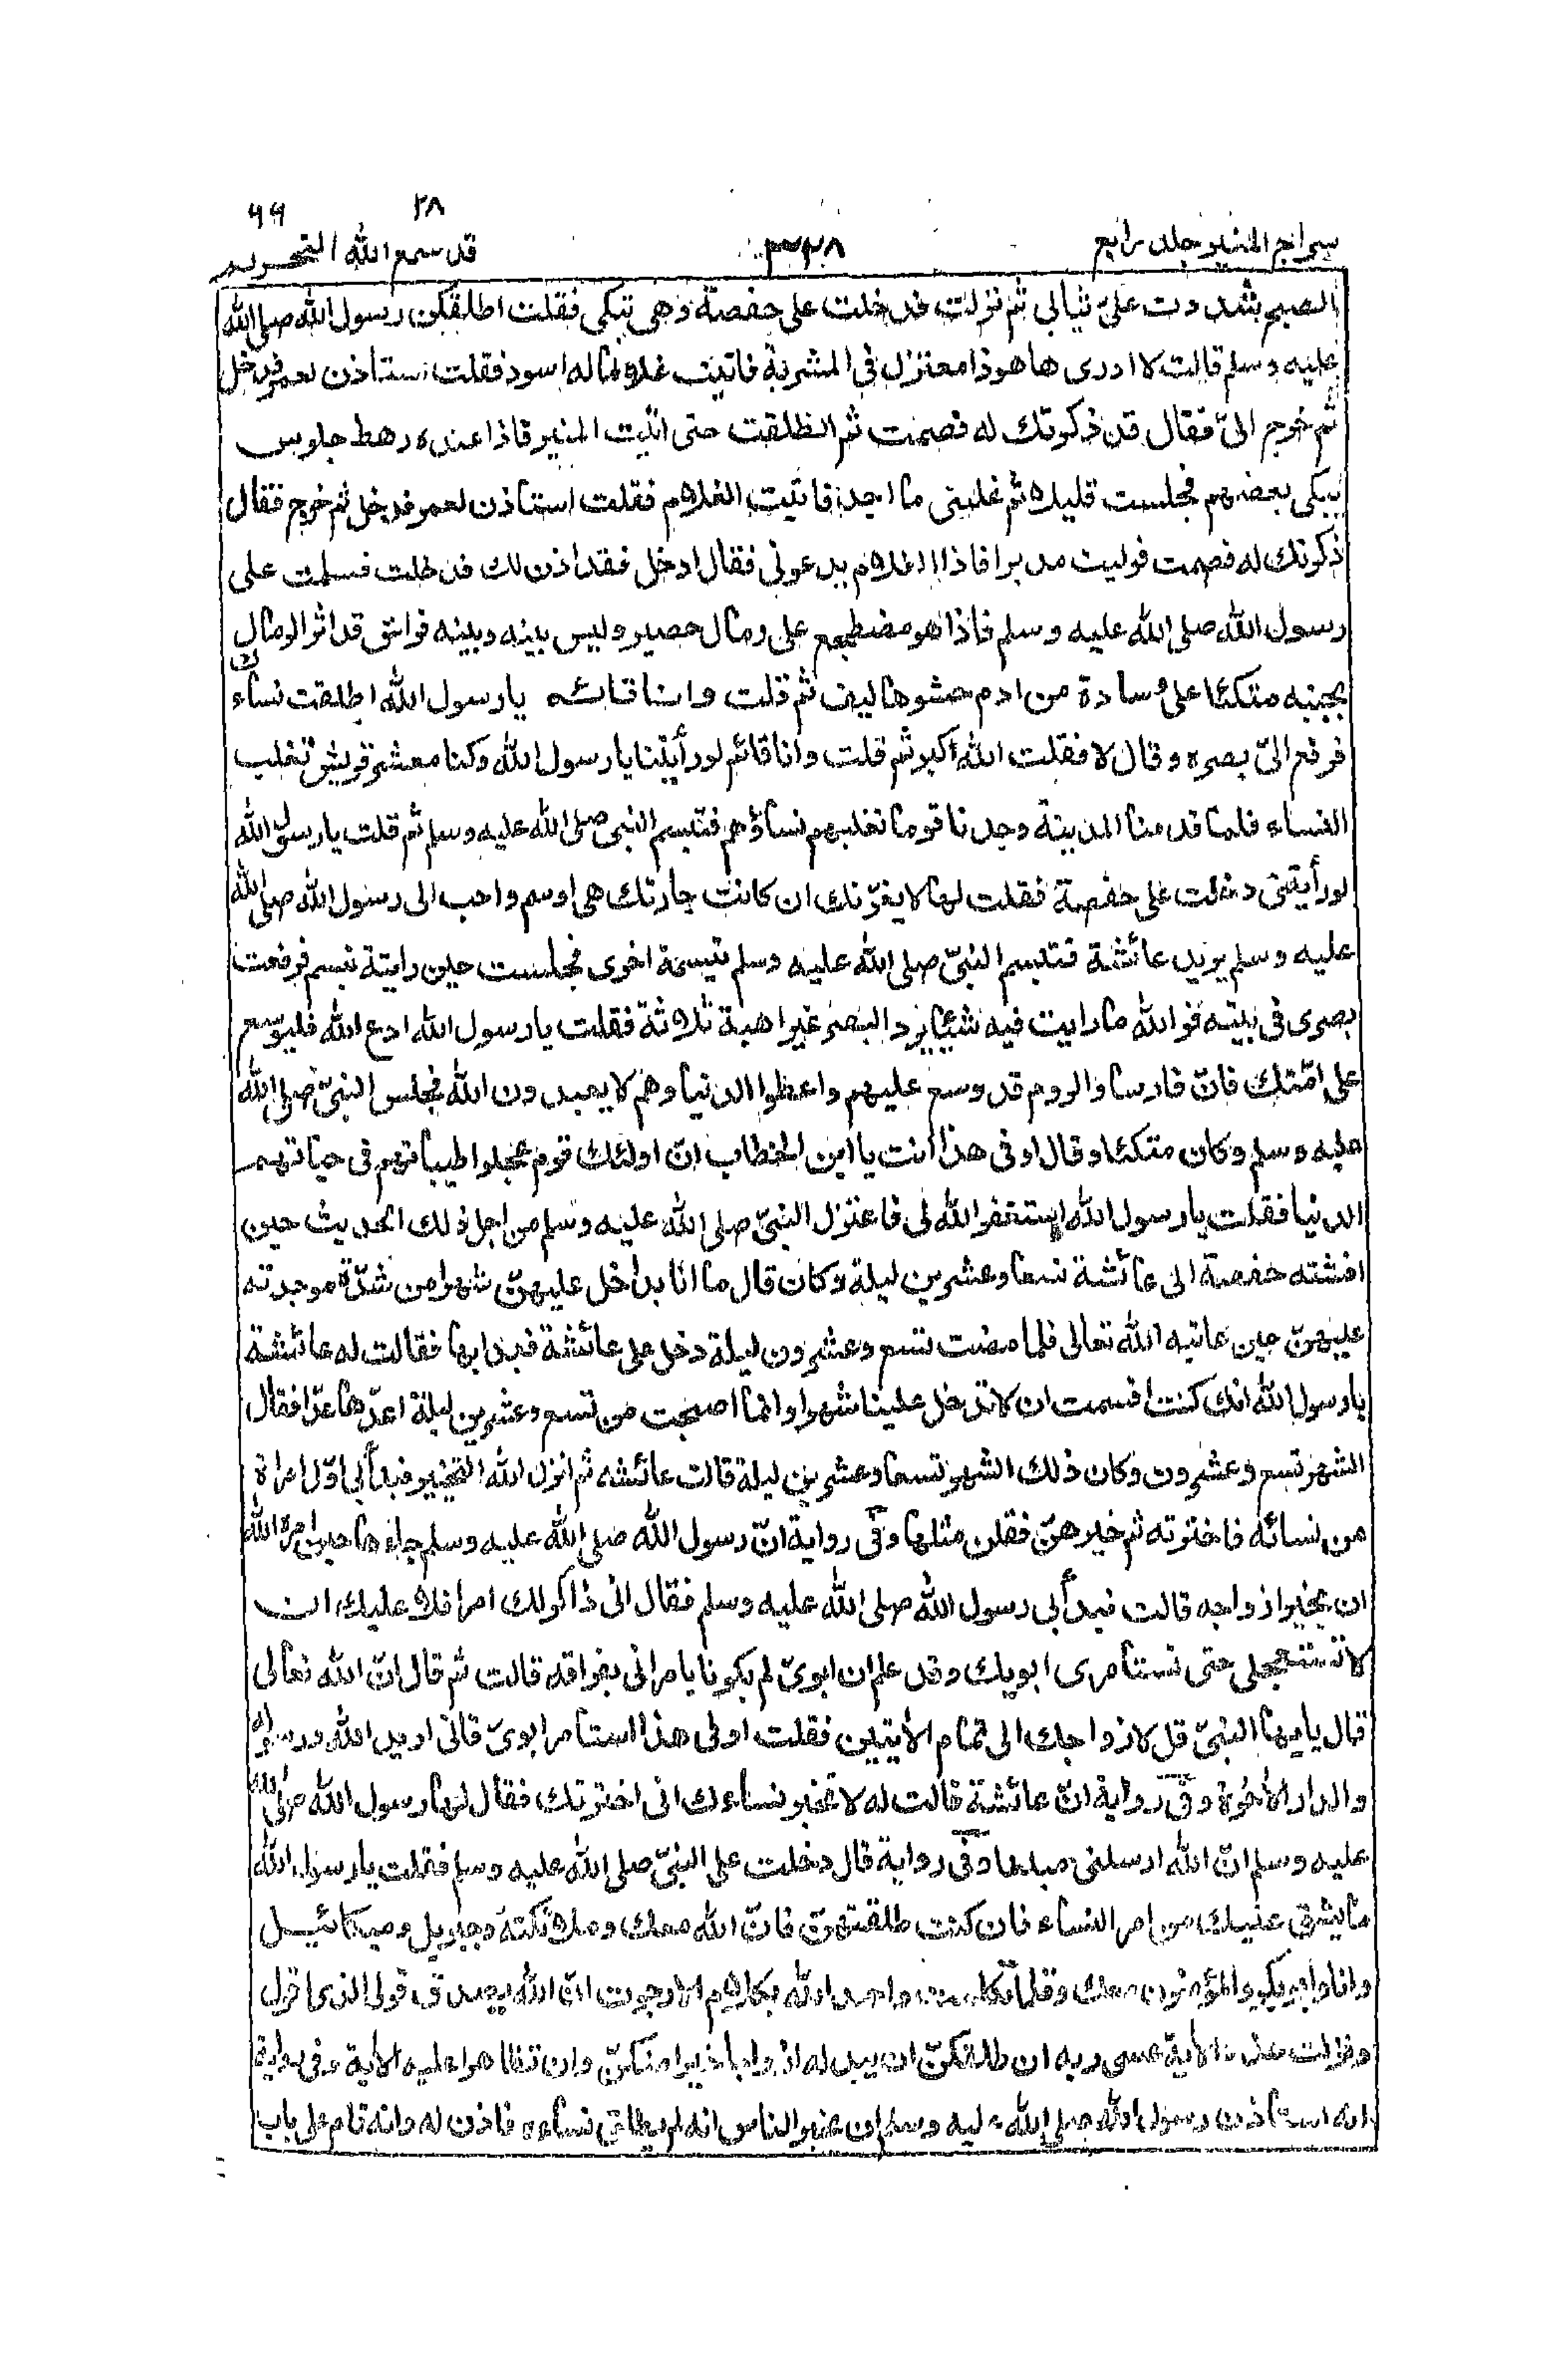 ٢٨ ٦٦
سراج المنير جلد رابع ٣٢٨ قد سمع الله التحريم
الصبح شددت علىّ ثيابى ثم نزلت فدخلت على حفصة وهى تبكى فقلت اطلقكن رسول الله صلى الله
عليه وسلم قالت لا ادرى ها هو ذا معتزل فى المشربة فاتيت غلاما له اسود فقلت استاذن لعمر فدخل
ثم خرج الىّ فقال قد ذكرتك له فصمت ثم انطلقت حتى اتيت المنبر فاذا عنده رهط جلوس
يبكى بعضهم فجلست قليلا ثم غلبنى ما اجد فاتيت الغلام فقلت استاذن لعمر فدخل ثم خرج فقال
ذكرتك له فصمت فوليت مدبرا فاذا الغلام يدعونى فقال ادخل فقد اذن لك فدخلت فسلمت على
رسول الله صلى الله عليه وسلم فاذا هو مضطجع على رمال حصير وليس بينه وبينه فراش قد اثر الرمال
بجنبه متكئا على وسادة من ادم حشوها ليف ثم قلت وانا قائم يا رسول الله اطلقت نساءك
فرفع الىّ بصره وقال لا فقلت الله أكبر ثم قلت وانا قائم لو رأيتنا يا رسول الله وكنا معشر قريش نغلب
النساء فلما قدمنا المدينة وجدنا قوما تغلبهم نساؤهم فتبسم النبى صلى الله عليه وسلم ثم قلت يا رسول الله
لو رأيتنى دخلت على حفصة فقلت لها لا يغرّنك ان كانت جارتك هى اوسم واحب الى رسول الله صلى الله
عليه وسلم يريد عائشة فتبسم النبىّ صلى الله عليه وسلم تبسمة اخرى فجلست حين رايته تبسم فرفعت
بصرى فى بيته فوالله ما رايت فيه شيئا يرد البصر غير اهبة ثلاثة فقلت يا رسول الله ادع الله فليوسع
على امّتك فانّ فارسا والروم قد وسع عليهم واعطوا الدنيا وهم لا يعبدون الله فجلس النبىّ صلى الله
عليه وسلم وكان متكئا وقال او فى هذا أنت يا ابن الخطاب انّ اولئك قوم عجلوا طيباتهم فى حياتهم
الدنيا فقلت يا رسول الله استغفر الله لى فاعتزل النبىّ صلى الله عليه وسلم من اجل ذلك الحديث حين
افشته حفصة الى عائشة تسعا وعشرين ليلة وكان قال ما انا بداخل عليهنّ شهرا من شدّة موجدته
عليهنّ حين عاتبه الله تعالى فلما مضت تسع وعشرون ليلة دخل على عائشة فبدا بها فقالت له عائشة
يا رسول الله انك كنت اقسمت ان لا تدخل علينا شهرا وانما اصبحت من تسع وعشرين ليلة اعدّها عدّا فقال
الشهر تسع وعشرون وكان ذلك الشهر تسعا وعشرين ليلة قالت عائشه ثم انزل الله التخيير فبدأ بى اوّل امراة
من نسائه فاخترته ثم خيرهنّ فقلن مثلها وفى رواية انّ رسول الله صلى الله عليه وسلم جاءها حين امره الله
ان يخير ازواجه قالت فبدأ بى رسول الله صلى الله عليه وسلم فقال انى ذاكر لك امرا فلا عليك ان
لا تستعجلى حتى تستامرى ابويك وقد علم ان ابوىّ لم يكونا يامرانى بفراقه قالت ثم قال انّ الله تعالى
قال يا ايها النبىّ قل لازواجك الى تمام الأيتين فقلت او فى هذا استامر ابوىّ فانى اريد الله ورسوله
والدار الأخرة وفى رواية انّ عائشة قالت له لا تخبر نساءك انى اخترتك فقال لها رسول الله صلى الله
عليه وسلم انّ الله ارسلنى مبلغا وفى رواية قال دخلت على النبىّ صلى الله عليه وسلم فقلت يا رسول الله
ما يشق عليك من امر النساء فان كنت طلقتهنّ فانّ الله معك وملائكته وجبريل وميكائيل
وانا وابو بكر والمؤمنون معك وقلما تكلمت واحمد الله بكلام الا رجوت انّ الله يصدق قولى الذى اقول
ونزلت هذه الأية عسى ربه ان طلقكنّ ان يبدله ازواجا خيرا منكنّ وان تظاهرا عليه الأية وفى رواية
انه استاذن رسول الله صلى الله عليه وسلم ان يخبر الناس انه لم يطلق نساءه فاذن له وانه قام على باب